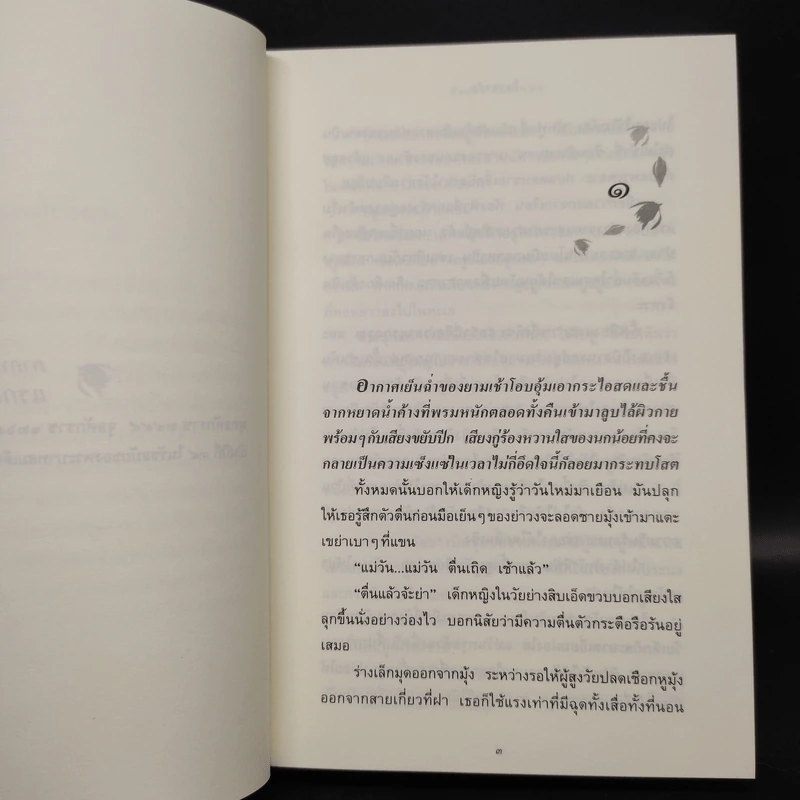 ๑
อากาศเย็นฉ่ำของยามเช้าโอบอุ้มเอากระไอสดและชื้น
จากหยาดน้ำค้างที่พรมหนักตลอดทั้งคืนเข้ามาลูบไล้ผิวกาย
พร้อมๆกับเสียงขยับปีก เสียงกู่ร้องหวานใสของนกน้อยที่คงจะ
กลายเป็นความเซ็งแซ่ในเวลาไม่กี่อึดใจนี้ก็ลอยมากระทบโสต
ทั้งหมดนั้นบอกให้เด็กหญิงรู้ว่าวันใหม่มาเยือน มันปลุก
ให้เธอรู้สึกตัวตื่นก่อนมือเย็นๆของย่าวงจะลอดชายมุ้งเข้ามาแตะ
เขย่าเบาๆที่แขน
“แม่วัน...แม่วัน ตื่นเถิด เช้าแล้ว”
“ตื่นแล้วจ้ะย่า” เด็กหญิงในวัยย่างสิบเอ็ดขวบบอกเสียงใส
ลุกขึ้นนั่งอย่างว่องไว บอกนิสัยว่ามีความตื่นตัวกระตือรือร้นอยู่
เสมอ
ร่างเล็กมุดออกจากมุ้ง ระหว่างรอให้ผู้สูงวัยปลดเชือกหูมุ้ง
ออกจากสายเกี่ยวที่ฝา เธอก็ใช้แรงเท่าที่มีฉุดทั้งเสื่อทั้งที่นอน
๓